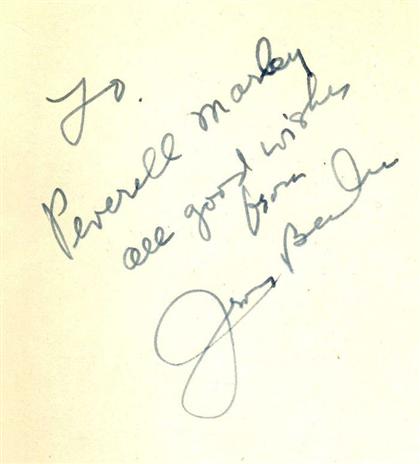 To.
Peverell Marley
all good wishes
from
Irving Berlin